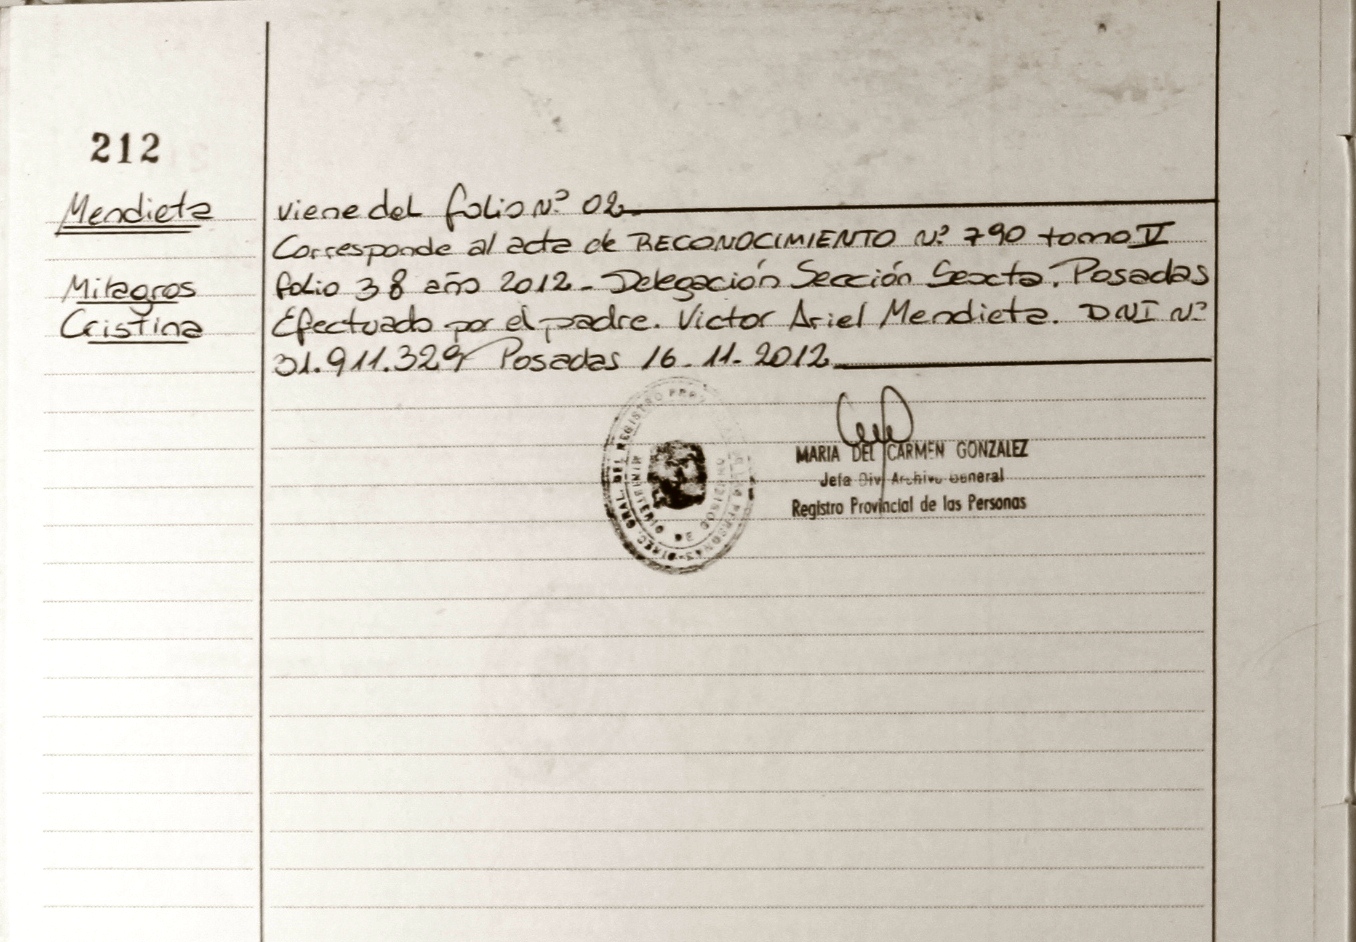 212
Mendieta
Milagros
Cristina
viene del folio Nº 02
Corresponde al acta de RECONOCIMIENTO Nº 790 tomo IV
folio 38 año 2012 - Delegación Sección Sexta. Posadas
Efectuado por el padre. Victor Ariel Mendieta. DNI Nº
31.911.329 Posadas 16-11-2012
DIREC. GRAL. DEL REGISTRO PERSONAS
MINISTERIO DE
MARIA DEL CARMEN GONZALEZ
Jefa Div Archivo General
Registro Provincial de las Personas